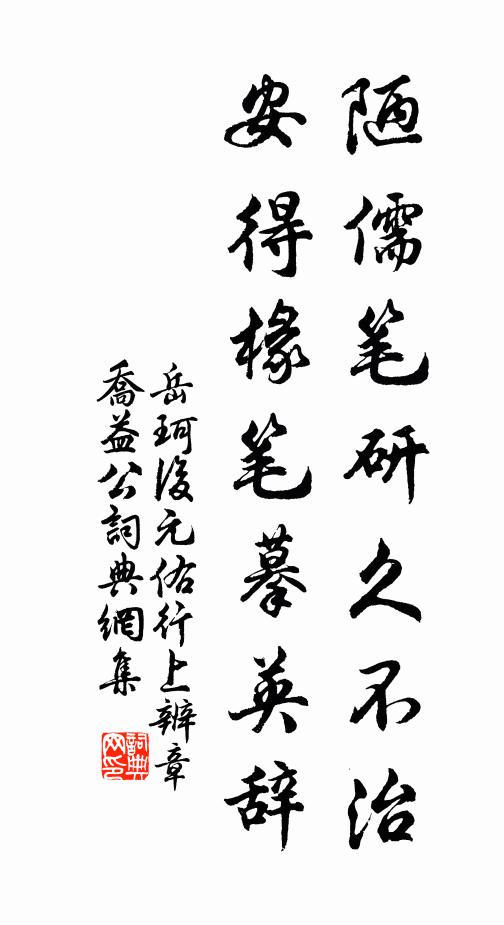 陋儒笔研久不治
安得椽笔摹英辞
岳珂後元佑行上辨章
喬益公詞典網集
詞典网印